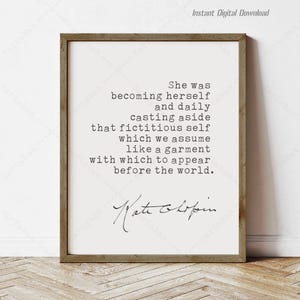 Instant Digital Download
She was
becoming herself
and daily
casting aside
that fictitious self
which we assume
like a garment
with which to appear
before the world.
Kate Chopin